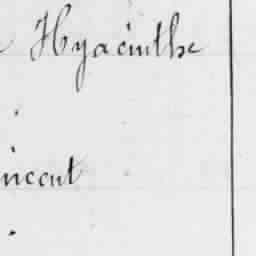 Hyacinthe
incent